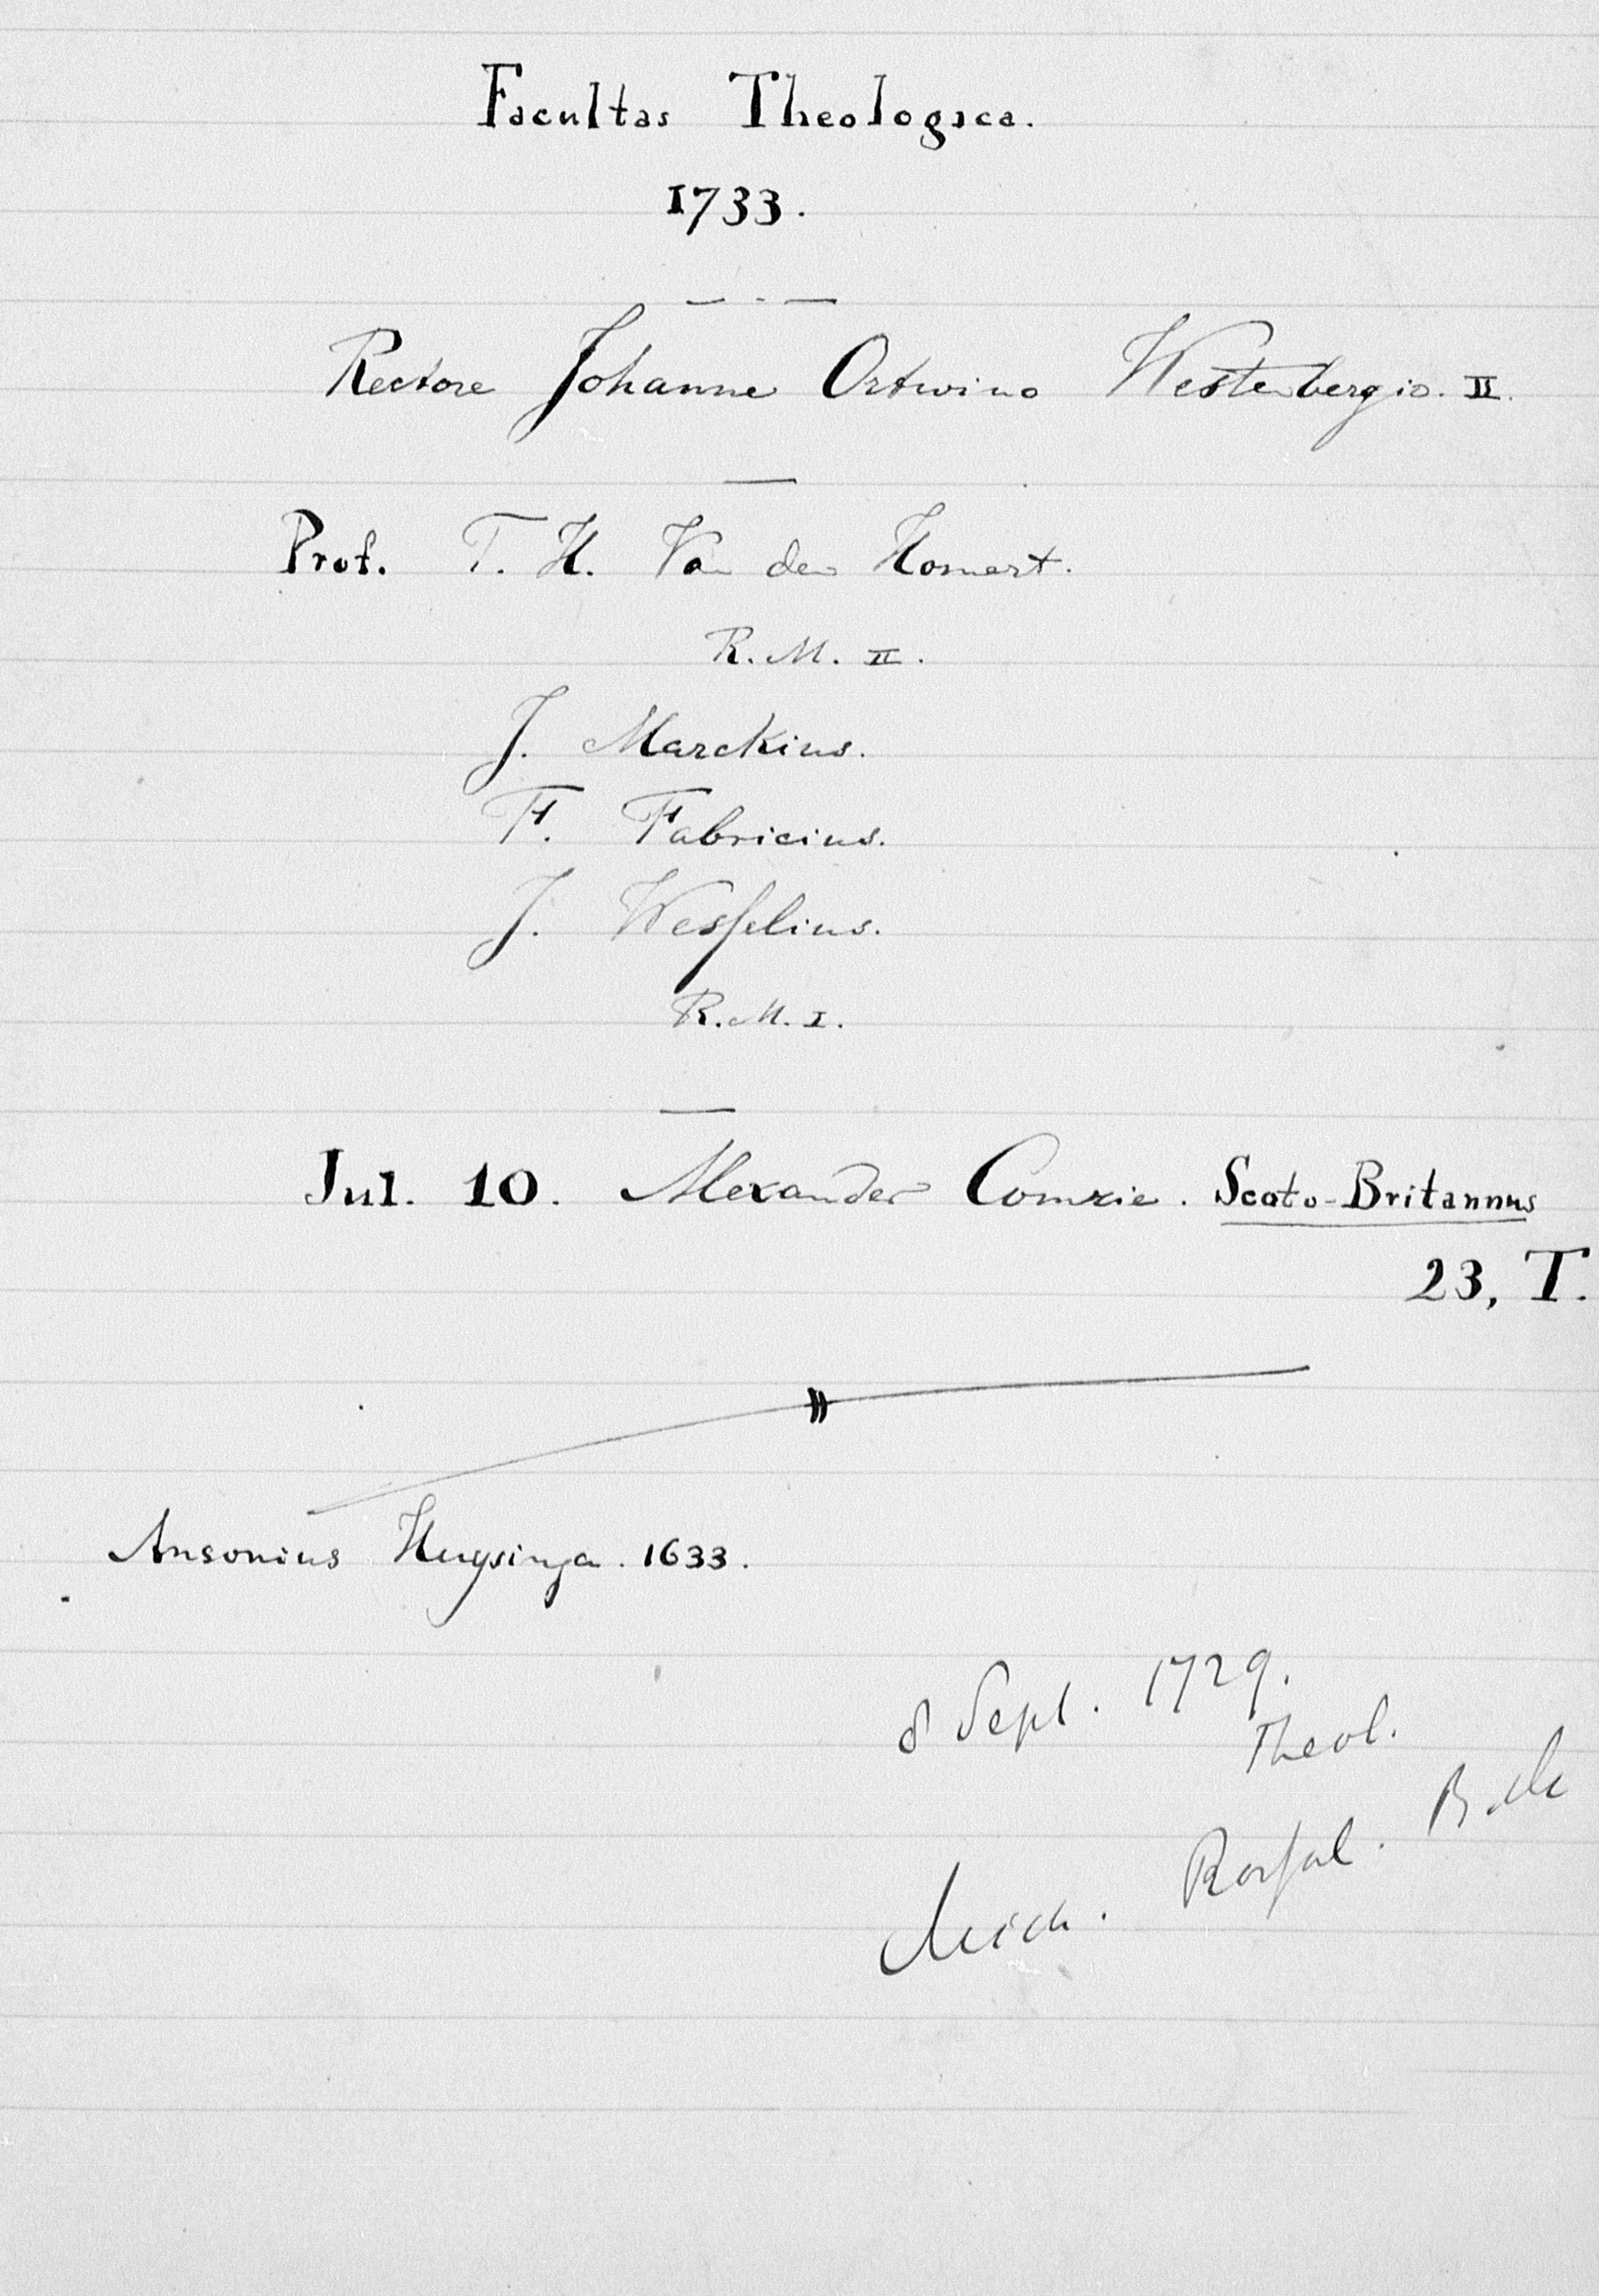 Facultas Theologica.
1733.
Rectore Johanne Ortwino Westenbergio. II.
Prof. T. H. Van den Honert.
R. M. II.
J. Marckius.
F. Fabricius.
J. Wesselius.
R. M. I.
Jul. 10. Alexander Comrie. Scoto-Britannus
23, T.
Ausonius Huysinga. 1633.
8 Sept. 1729.
Theol.
Rossal.